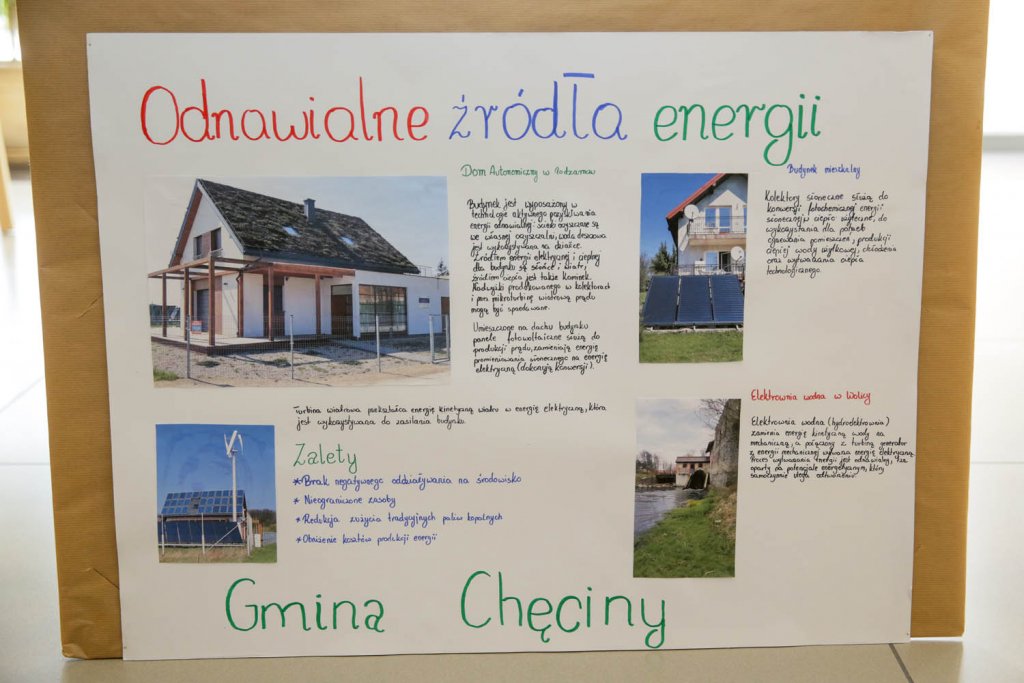 Odnawialne źródła energii
Dom Autonomiczny w Podzamczu
Budynek jest wyposażony w
technologie aktywnego pozyskiwania
energii odnawialnej. Ścieki oczyszczane są
we własnej oczyszczalni, woda deszczowa
jest wykorzystywana na działce.
Źródłem energii elektrycznej i cieplnej
dla budynku są słońce i wiatr,
źródłem ciepła jest także kominek.
Nadwyżki produkowanego w kolektorach
i przez mikroturbinę wiatrową prądu
mogą być sprzedawane.
Umieszczone na dachu budynku
panele fotowoltaiczne służą do
produkcji prądu, zamieniają energię
promieniowania słonecznego na energię
elektryczną (dokonują konwersji).
Budynek mieszkalny
Kolektory słoneczne służą do
konwersji fotochemicznej energii
słonecznej w ciepło użyteczne, do
wykorzystania dla potrzeb
ogrzewania pomieszczeń, produkcji
ciepłej wody użytkowej, chłodzenia
oraz wytwarzania ciepła
technologicznego.
Turbina wiatrowa przekształca energię kinetyczną wiatru w energię elektryczną, która
jest wykorzystywana do zasilania budynku.
Zalety
*Brak negatywnego oddziaływania na środowisko
* Nieograniczone zasoby
* Redukcja zużycia tradycyjnych paliw kopalnych
*Obniżenie kosztów produkcji energii
Elektrownia wodna w Wolicy
Elektrownia wodna (hydroelektrownia)
zamienia energię kinetyczną wody na
mechaniczną, a połączony z turbiną generator
z energii mechanicznej wytwarza energię elektryczną.
Proces wytwarzania energii jest odnawialny, tzn.
oparty na potencjale energetycznym, który
samoczynnie ulega odtwarzaniu.
Gmina Chęciny